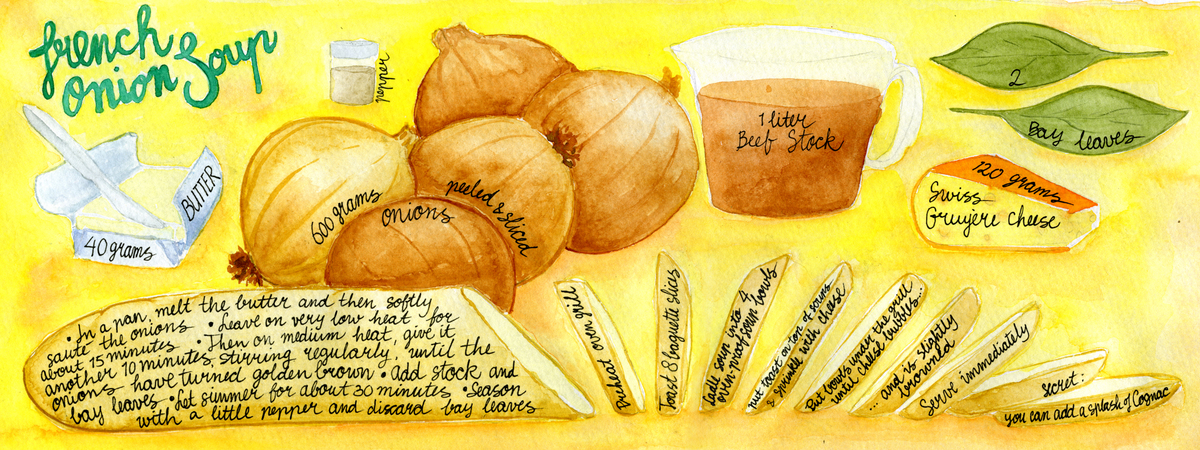 French
Onion Soup
pepper
BUTTER
40 grams
600 grams
onions
peeled & sliced
1 liter
Beef Stock
2
Bay leaves
120 grams
Swiss
Gruyère cheese
• In a pan, melt the butter and then softly
sauté the onions • Leave on very low heat for
about 15 minutes • Then on medium heat, give it
another 10 minutes, stirring regularly, until the
onions have turned golden brown • Add stock and
bay leaves • Let simmer for about 30 minutes • Season
with a little pepper and discard bay leaves
Preheat oven grill
Toast 8 baguette slices
Ladle soup into 4
oven proof soup bowls
Put toast on top of soups
& sprinkle with cheese
Put bowls under the grill
until cheese bubbles...
... and is slightly
browned
Serve immediately
secret:
you can add a splash of Cognac